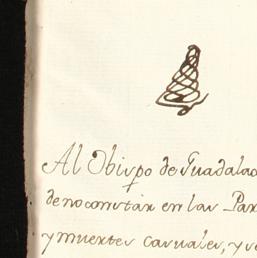 Al Obispo de Guadalac
de no constar en las Par
y muertes casuales, y se